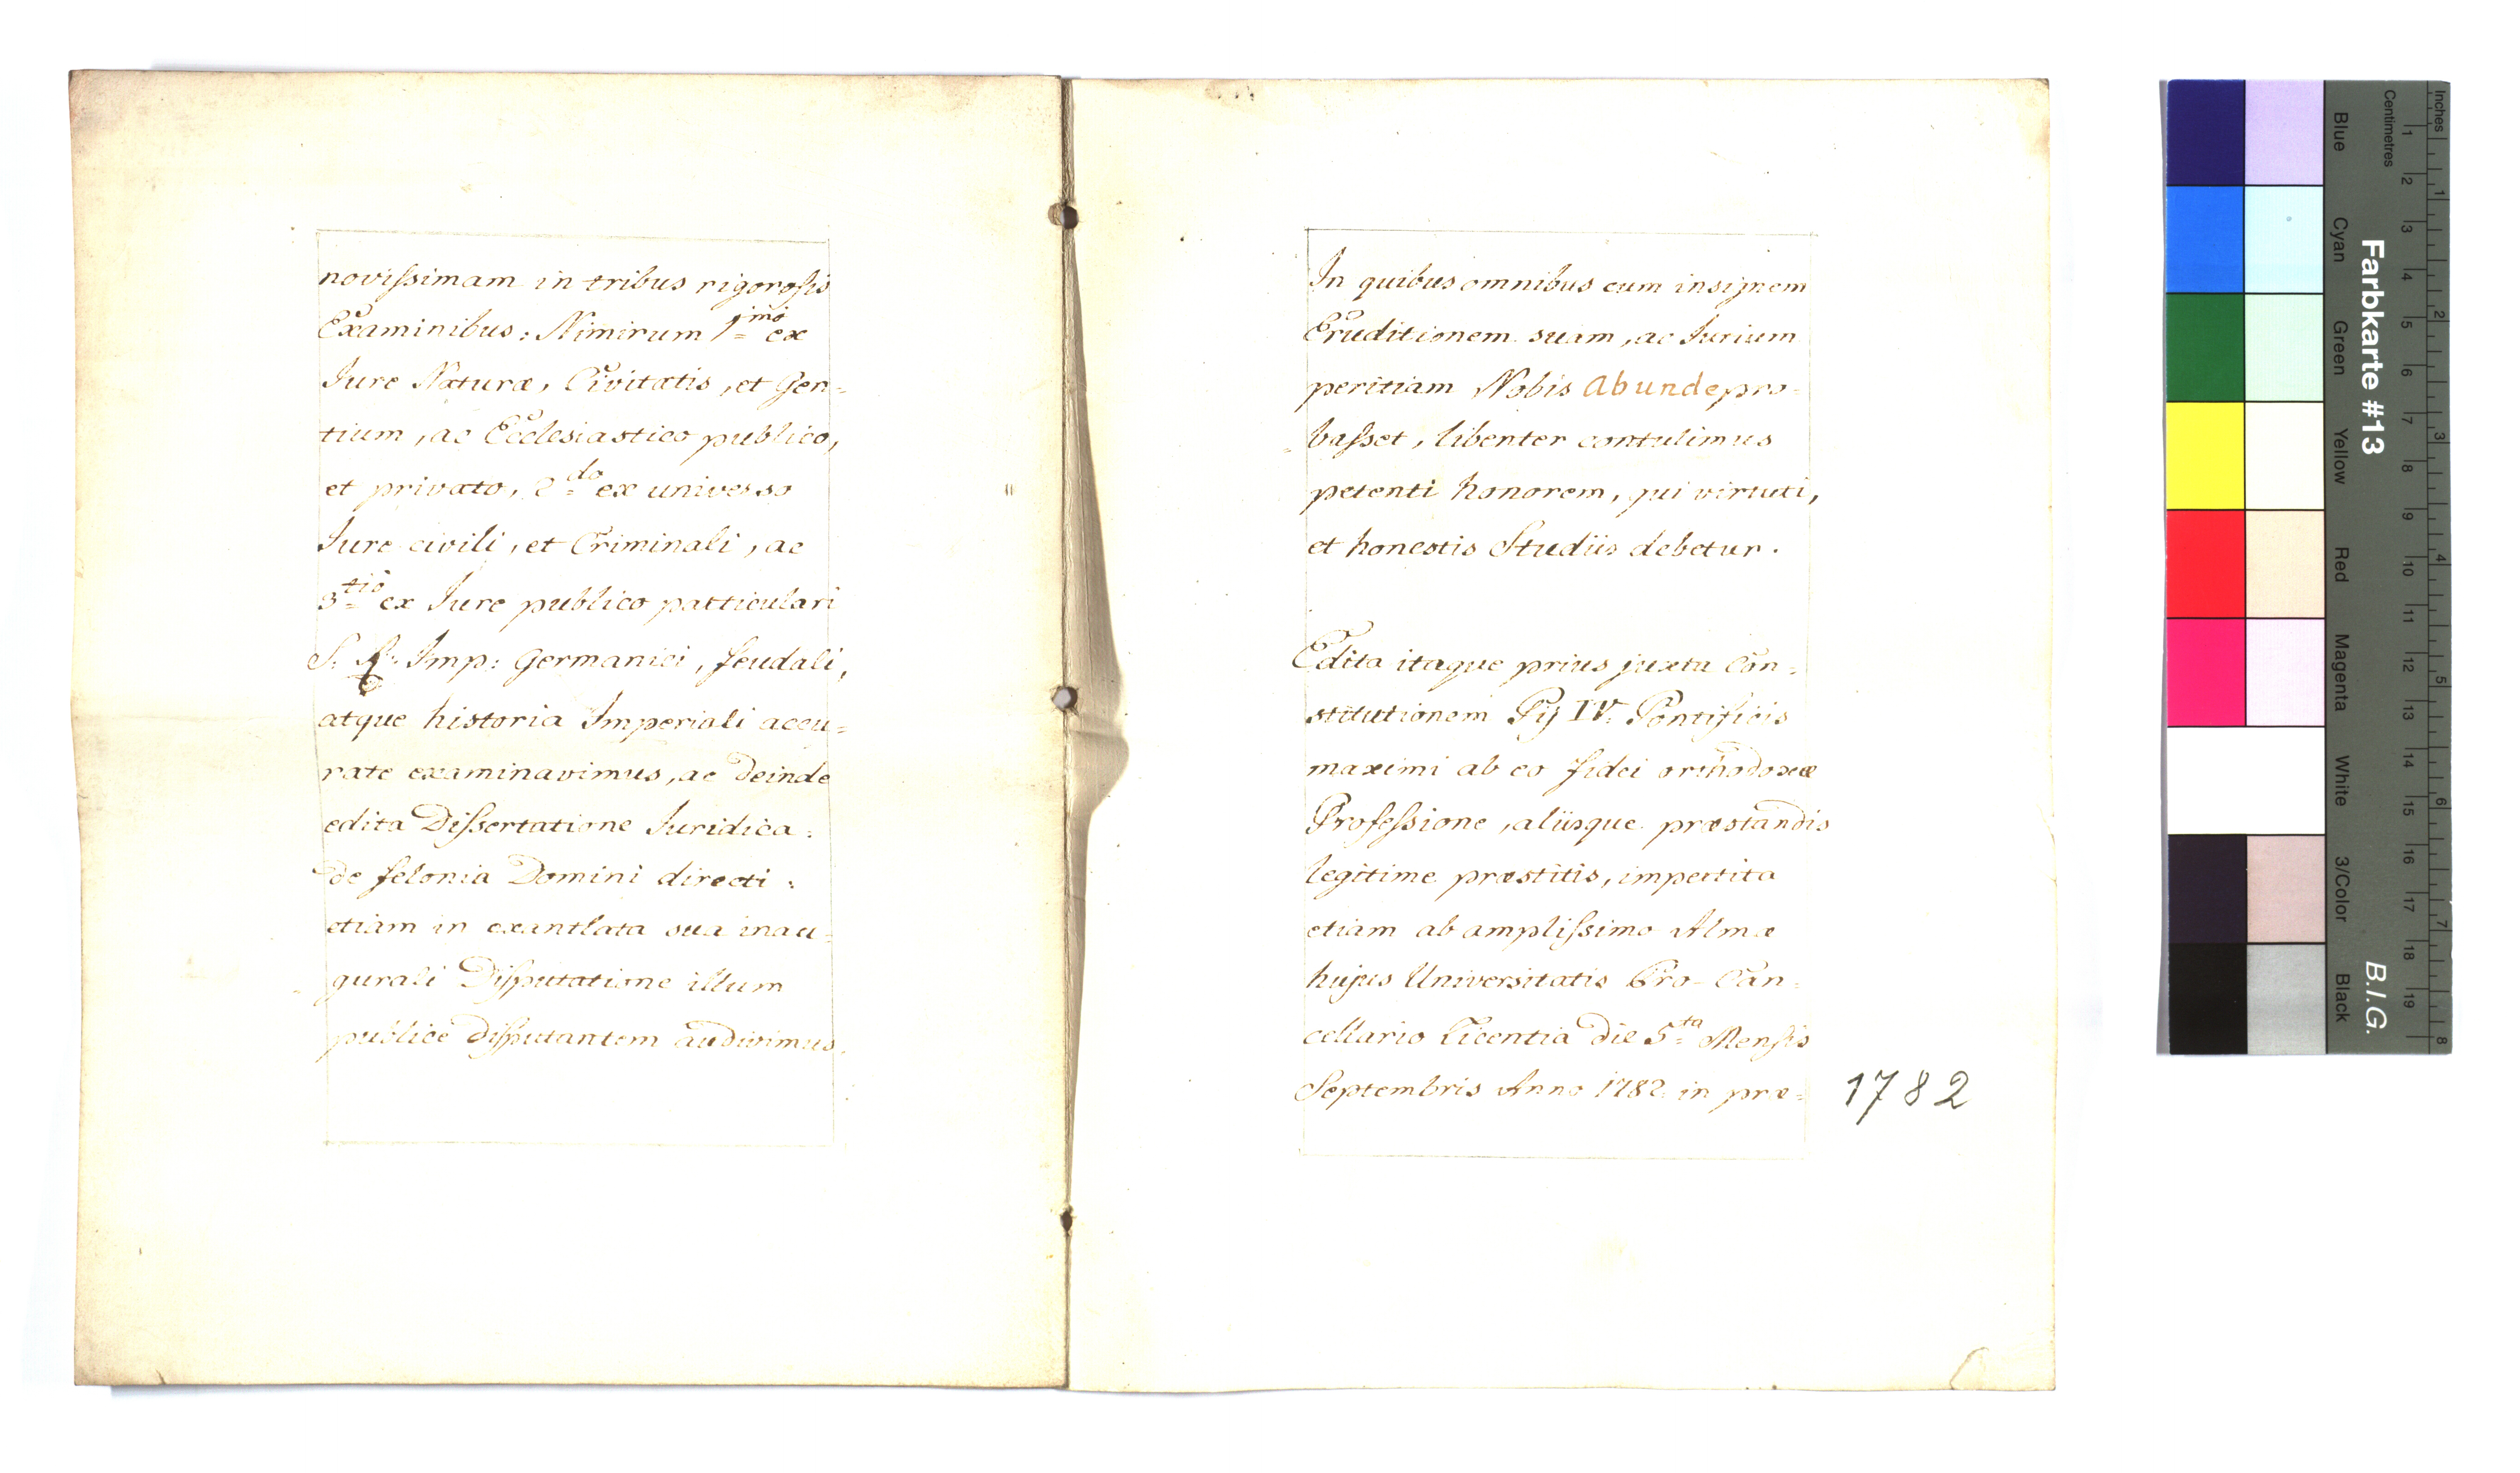 novissimam in tribus rigorosis
Examinibus: Nimirum 1mo ex
Iure Naturæ, Civitatis, et Gen=
tium, ac Ecclesiastico publico,
et privato, 2do ex universo
Iure civili, et Criminali, ac
3tio ex Iure publico particulari
S. R. Imp: Germanici, feudali,
atque historia Imperiali accu=
rate examinavimus, ac deinde
edita Dissertatione Iuridica:
de felonia Domini directi:
etiam in exantlata sua inau=
gurali Disputatione illum
publicè disputantem audivimus.
In quibus omnibus cum insignem
Eruditionem suam, ac Iurium
peritiam Nobis abunde pro=
basset, libenter contulimus
petenti honorem, qui virtuti,
et honestis Studiis debetur.
Edita itaque prius juxta Con=
stitutionem Pij IV. Pontificis
maximi ab eo fidei orthodoxæ
Professione, aliisque præstandis
legitime præstitis, impertita
etiam ab amplissimo Almæ
hujus Universitatis Pro-Can=
cellario Licentia die 5ta Mensis
Septembris Anno 1782 in præ=
1782
Inches
Centimetres
1 2 3 4 5 6 7 8
1 2 3 4 5 6 7 8 9 10 11 12 13 14 15 16 17 18 19
Farbkarte #13
B.I.G.
Blue
Cyan
Green
Yellow
Red
Magenta
White
3/Color
Black